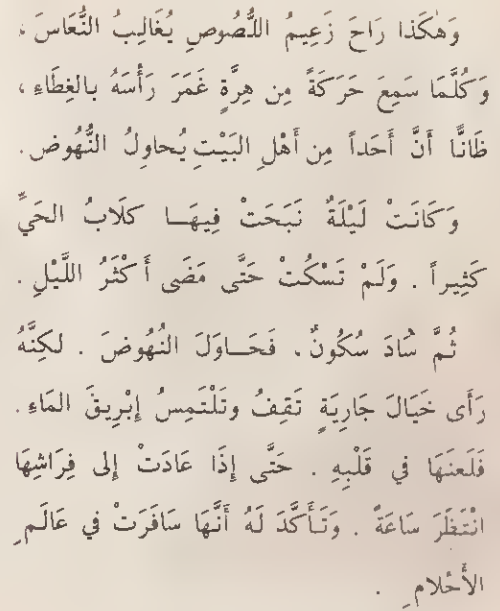 وَهٰكَذا رَاحَ زَعِيمُ اللُّصُوصِ يُغَالِبُ النُّعَاسَ ،
وَكُلَّمَا سَمِعَ حَرَكَةً مِن هِرَّةٍ غَمَرَ رَأْسَهُ بالغِطَاءِ ،
ظَانًّا أَنَّ أَحَداً مِن أَهْلِ البَيْتِ يُحاوِلُ النُّهُوض .
وَكَانَتْ لَيْلَةٌ نَبَحَتْ فِيهَا كلَابُ الحَيِّ
كَثِيراً . وَلَمْ تَسْكُتْ حَتَّى مَضَى أَكْثَرُ اللَّيْلِ .
ثُمَّ سَادَ سُكُونٌ . فَحَاوَلَ النُهُوضَ . لكِنَّهُ
رَأَى خَيَالَ جَارِيَةٍ تَقِفُ وتَلْتَمِسُ إبْرِيقَ المَاءِ .
فَلَعنَهَا في قَلْبِهِ . حَتَّى إذَا عَادَتْ إلى فِرَاشِهَا
انْتَظَرَ سَاعَةً . وَتَأَكَّدَ لَهُ أَنَّهَا سَافَرَتْ في عَالَمِ
الأَحْلامِ .